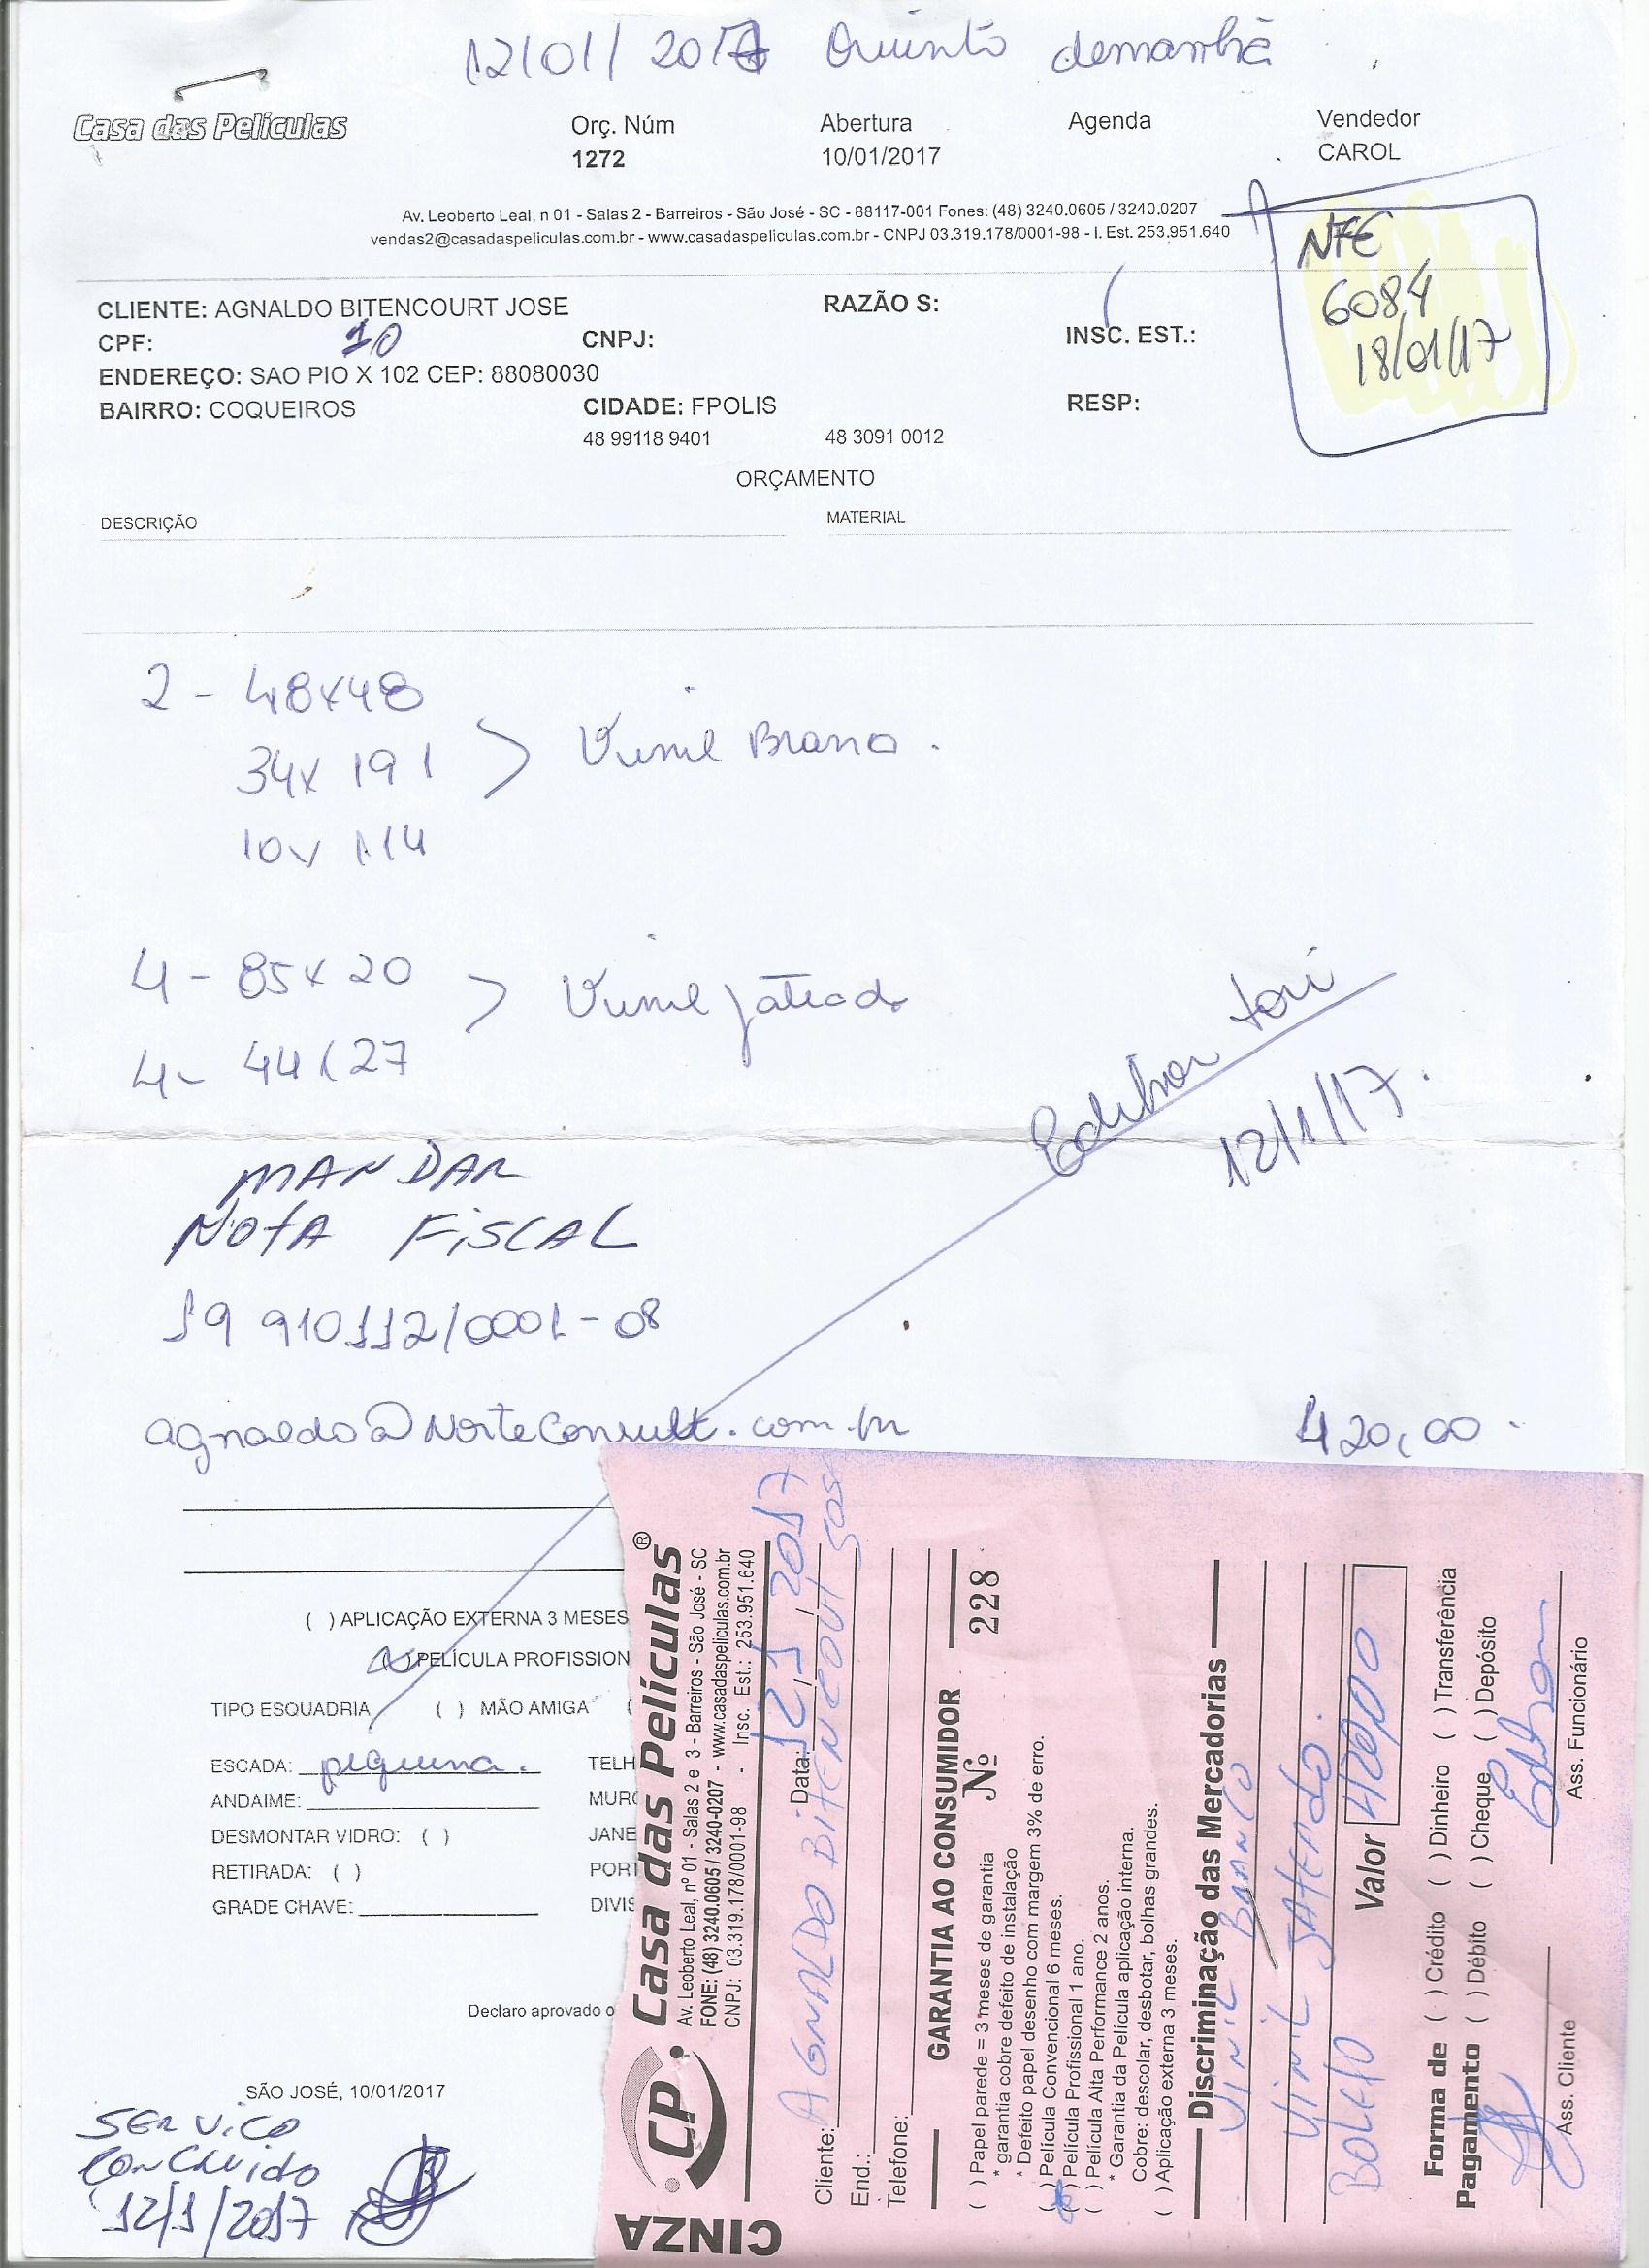 12/01/2017 Quinta demanhã
Casa das Películas
Orç. Núm Abertura Agenda Vendedor
1272 10/01/2017 CAROL
Av. Leoberto Leal, n 01 - Salas 2 - Barreiros - São José - SC - 88117-001 Fones: (48) 3240.0605 / 3240.0207
vendas2@casadaspeliculas.com.br - www.casadaspeliculas.com.br - CNPJ 03.319.178/0001-98 - I. Est. 253.951.640
NFE
6084
18/01/17
CLIENTE: AGNALDO BITENCOURT JOSE RAZÃO S:
CPF: CNPJ: INSC. EST.:
10
ENDEREÇO: SAO PIO X 102 CEP: 88080030
BAIRRO: COQUEIROS CIDADE: FPOLIS RESP:
48 99118 9401 48 3091 0012
ORÇAMENTO
DESCRIÇÃO MATERIAL
2 - 48x48
34x191 > Vinil Branco.
10x114
4 - 85x20 > Vinil jateado
4 - 44x27
12/1/17.
MANDAR
NOTA FISCAL
19 910112/0001-08
agnaldo@NorteConsult.com.br
420,00
( ) APLICAÇÃO EXTERNA 3 MESES
( ) PELÍCULA PROFISSION
TIPO ESQUADRIA ( ) MÃO AMIGA (
ESCADA: pequena. TELH
ANDAIME: MURO
DESMONTAR VIDRO: ( ) JANE
RETIRADA: ( ) PORT
GRADE CHAVE: DIVIS
Declaro aprovado o
SÃO JOSÉ, 10/01/2017
SERVICO
CONCLUIDO
12/1/2017
CINZA
CP Casa das Películas®
Av. Leoberto Leal, nº 01 - Salas 2 e 3 - Barreiros - São José - SC
FONE: (48) 3240.0605 / 3240-0207 - www.casadaspeliculas.com.br
CNPJ: 03.319.178/0001-98 - Insc. Est.: 253.951.640
Data: 12/1/2017
Cliente: AGNALDO BITENCOUT JOSE
End.:
Telefone:
GARANTIA AO CONSUMIDOR
Nº 228
( ) Papel parede = 3 meses de garantia
* garantia cobre defeito de instalação
* Defeito papel desenho com margem 3% de erro.
( ) Película Convencional 6 meses.
( ) Película Profissional 1 ano.
( ) Película Alta Performance 2 anos.
* Garantia da Película aplicação interna.
Cobre: descolar, desbotar, bolhas grandes.
( ) Aplicação externa 3 meses.
Discriminação das Mercadorias
VINIL BRANCO
VINIL JATEADO.
BOLETO Valor 420,00
Forma de Pagamento ( ) Crédito ( ) Dinheiro ( ) Transferência
( ) Débito ( ) Cheque ( ) Depósito
Ass. Cliente Ass. Funcionário